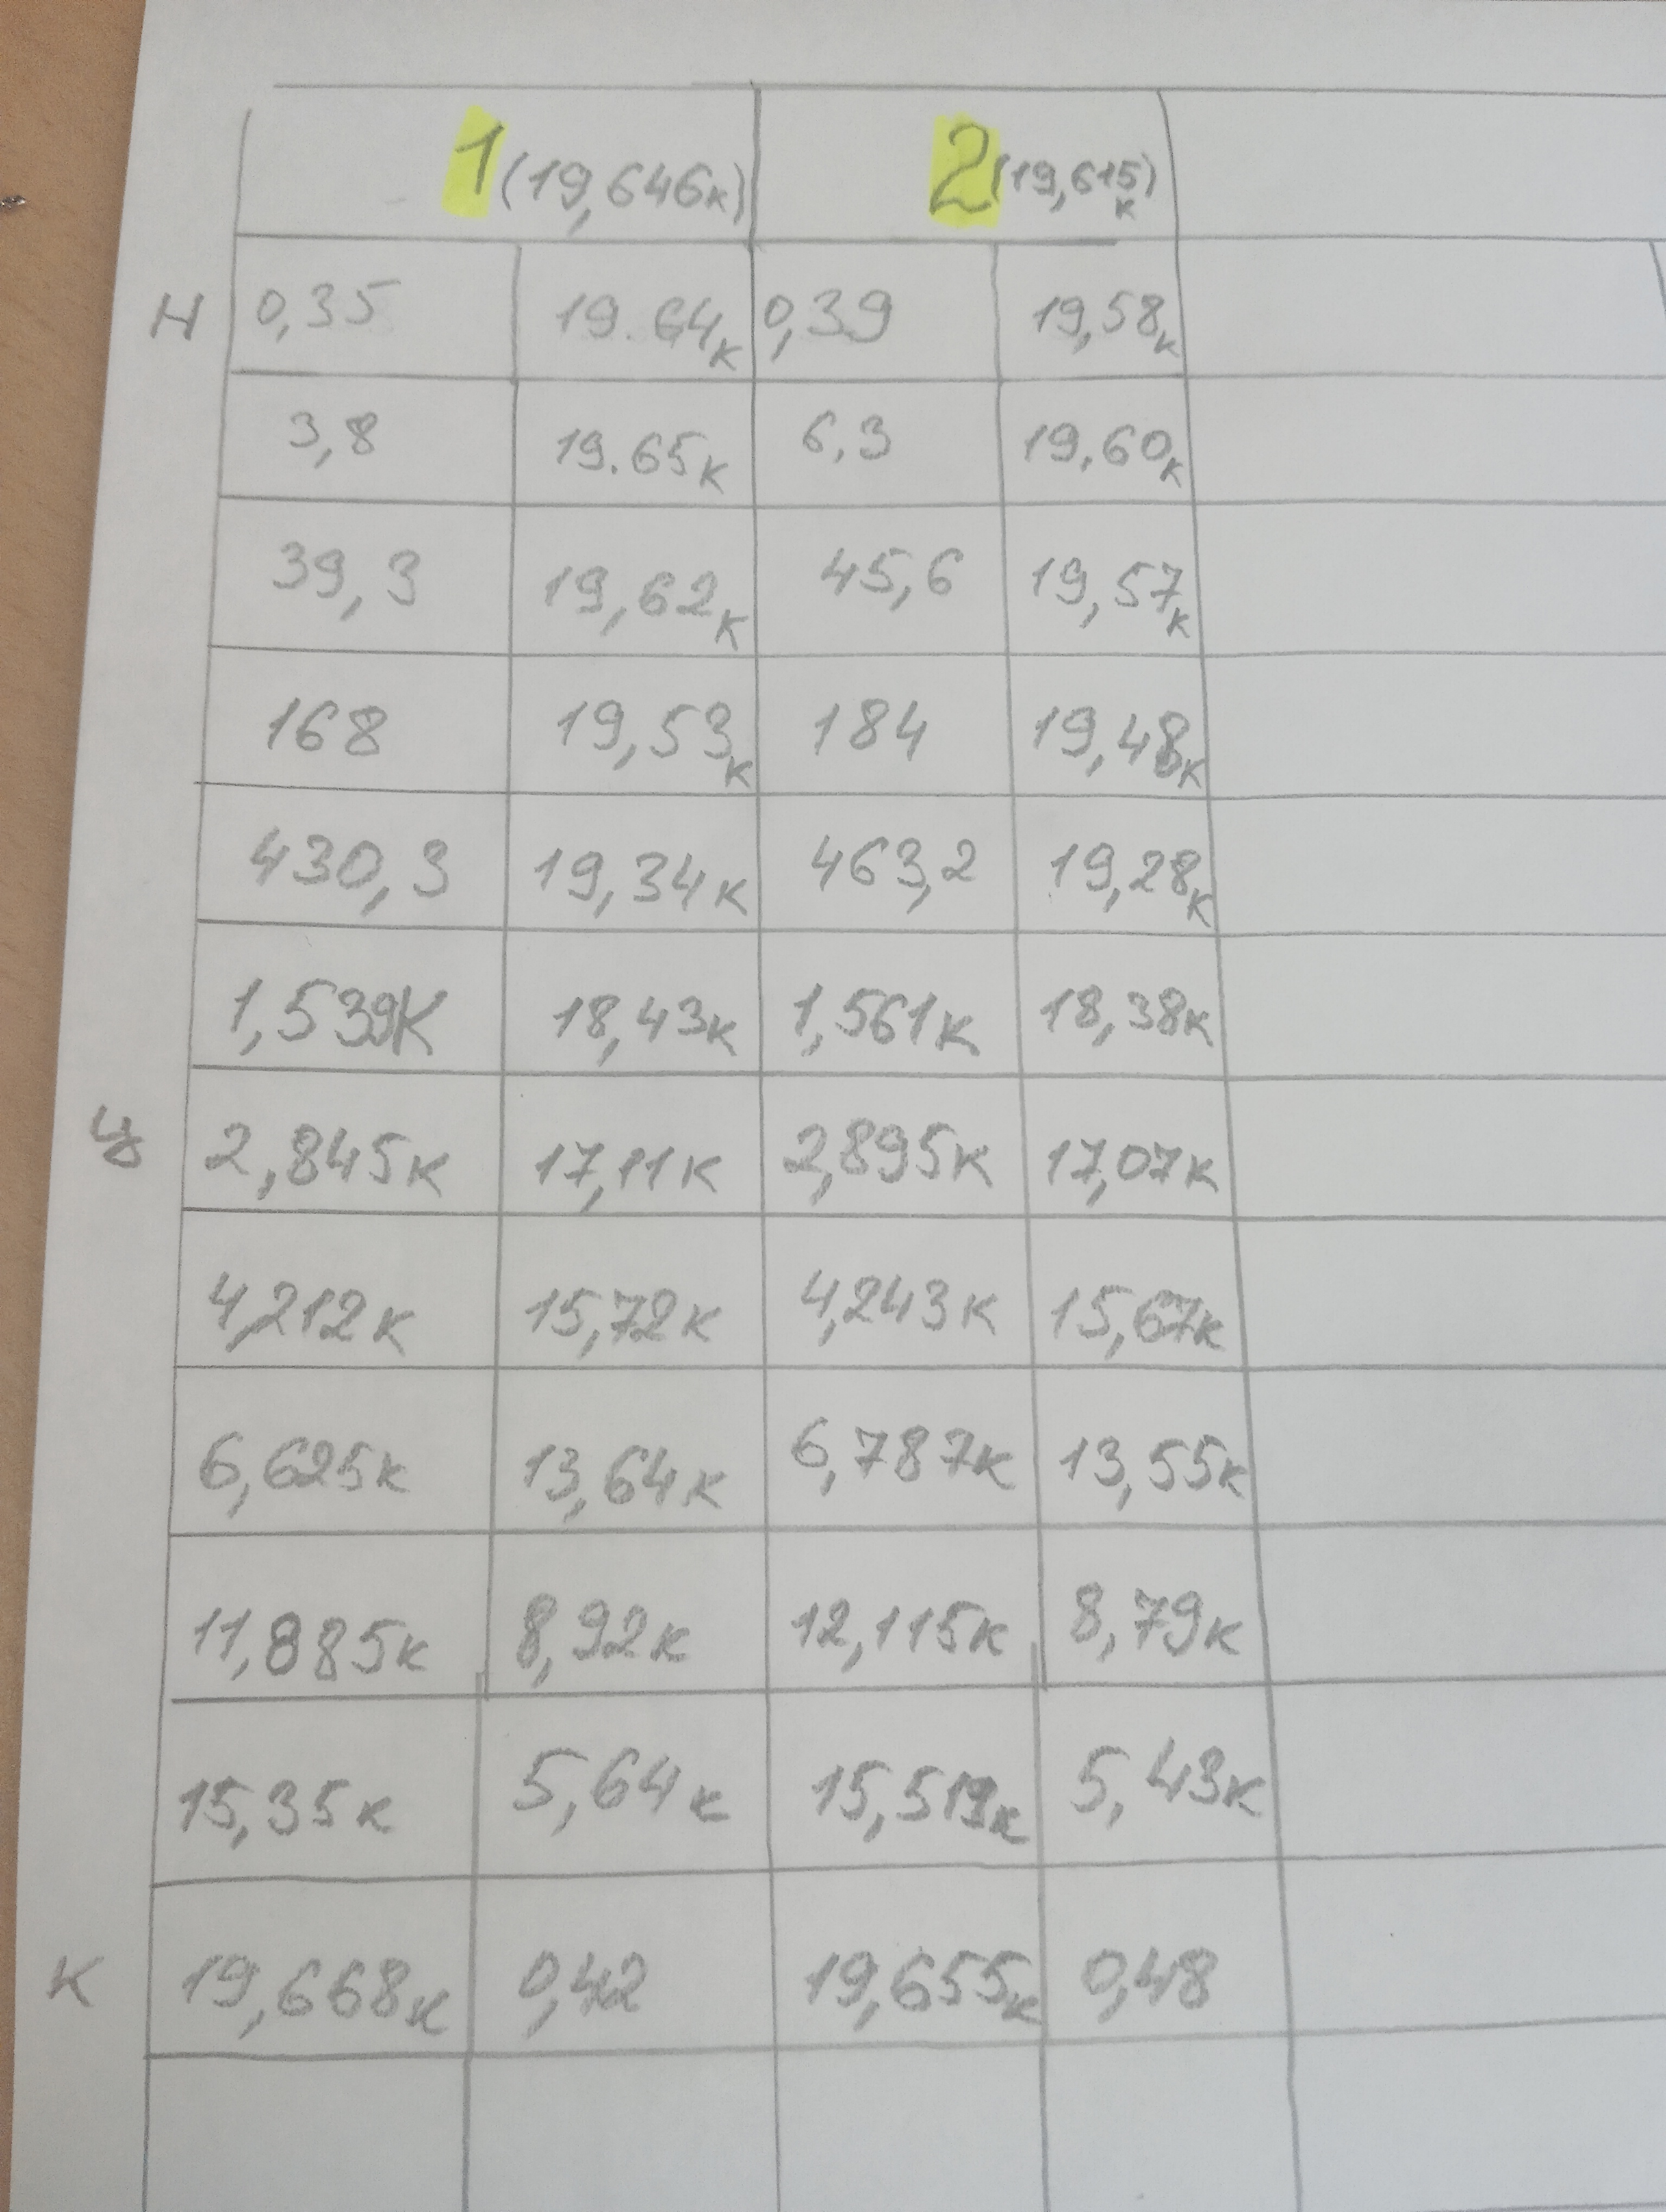 1 (19,646к) 2 (19,615к)
Н 0,35 19.64к 0,39 19,58к
3,8 19.65к 6,3 19,60к
39,3 19,62к 45,6 19,57к
168 19,53к 184 19,48к
430,3 19,34к 463,2 19,28к
1,539К 18,43к 1,561к 18,38к
Ц 2,845к 17,11к 2,895к 17,07к
4,212к 15,72к 4,243к 15,67к
6,625к 13,64к 6,787к 13,55к
11,885к 8,92к 12,115к 8,79к
15,35к 5,64к 15,519к 5,43к
К 19,668к 0,42 19,655к 0,48